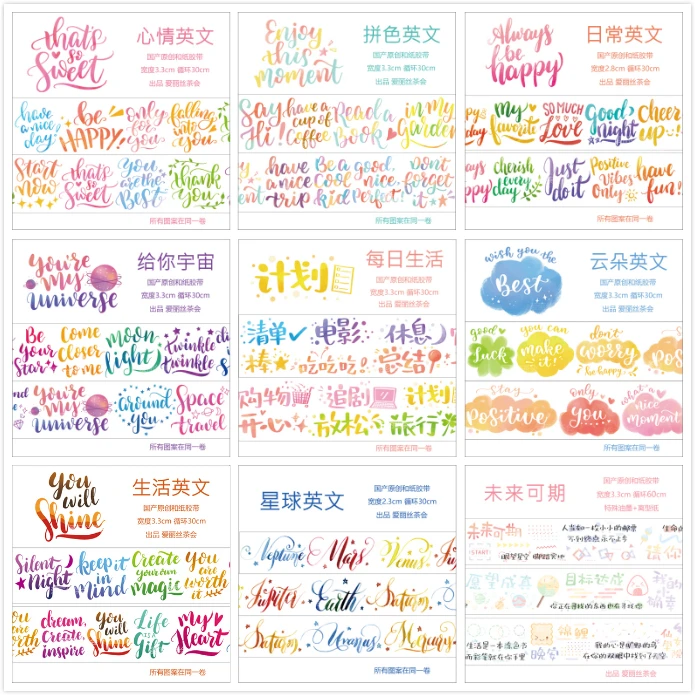 that's so sweet
心情英文
国产原创和纸胶带
宽度3.3cm 循环30cm
出品 爱丽丝茶会
have a nice day
be HAPPY!
only for you
falling into you
Start now
that's so sweet
You are the Best
thank you
所有图案在同一卷
Enjoy this moment
拼色英文
国产原创和纸胶带
宽度3.3cm 循环30cm
出品 爱丽丝茶会
Say Hi!
have a cup of Coffee
Read a BOOK
in my Garden
have a nice trip
Be a Cool kid
good, nice, Perfect!
don't forget it
所有图案在同一卷
Always be happy
日常英文
国产原创和纸胶带
宽度2.8cm 循环30cm
出品 爱丽丝茶会
my favorite
SO MUCH LOVE
Good night
Cheer up!
cherish every day
Just do it
Positive Vibes Only
have fun!
所有图案在同一卷
You're my universe
给你宇宙
国产原创和纸胶带
宽度3.3cm 循环30cm
出品 爱丽丝茶会
Be Your Star
Come Closer to me
moon light
twinkle twinkle
You're my universe
around you
Space travel
所有图案在同一卷
计划
每日生活
国产原创和纸胶带
宽度3.3cm 循环30cm
出品 爱丽丝茶会
清单 电影 休息
棒 吃吃吃! 总结
购物 追剧 计划
开心 放松 旅行
所有图案在同一卷
wish you the Best
云朵英文
国产原创和纸胶带
宽度3.3cm 循环30cm
出品 爱丽丝茶会
good luck
you can make it!
don't worry be happy
Pos
Stay Positive
Only You
what a nice moment
所有图案在同一卷
You will Shine
生活英文
国产原创和纸胶带
宽度3.3cm 循环30cm
出品 爱丽丝茶会
Silent Night
keep it in mind
Create your own magic
You are worth it
dream, Create, inspire
You will Shine
Life is a Gift
my Heart
所有图案在同一卷
星球英文
国产原创和纸胶带
宽度2.3cm 循环30cm
出品 爱丽丝茶会
Neptune Mars Venus
Jupiter Earth Saturn
Saturn Uranus Mercury
所有图案在同一卷
未来可期
国产原创和纸胶带
宽度3.3cm 循环60cm
特殊油墨+离型纸
未来可期
START
愿望成真 目标达成
我的
晚安
出品 爱丽丝茶会